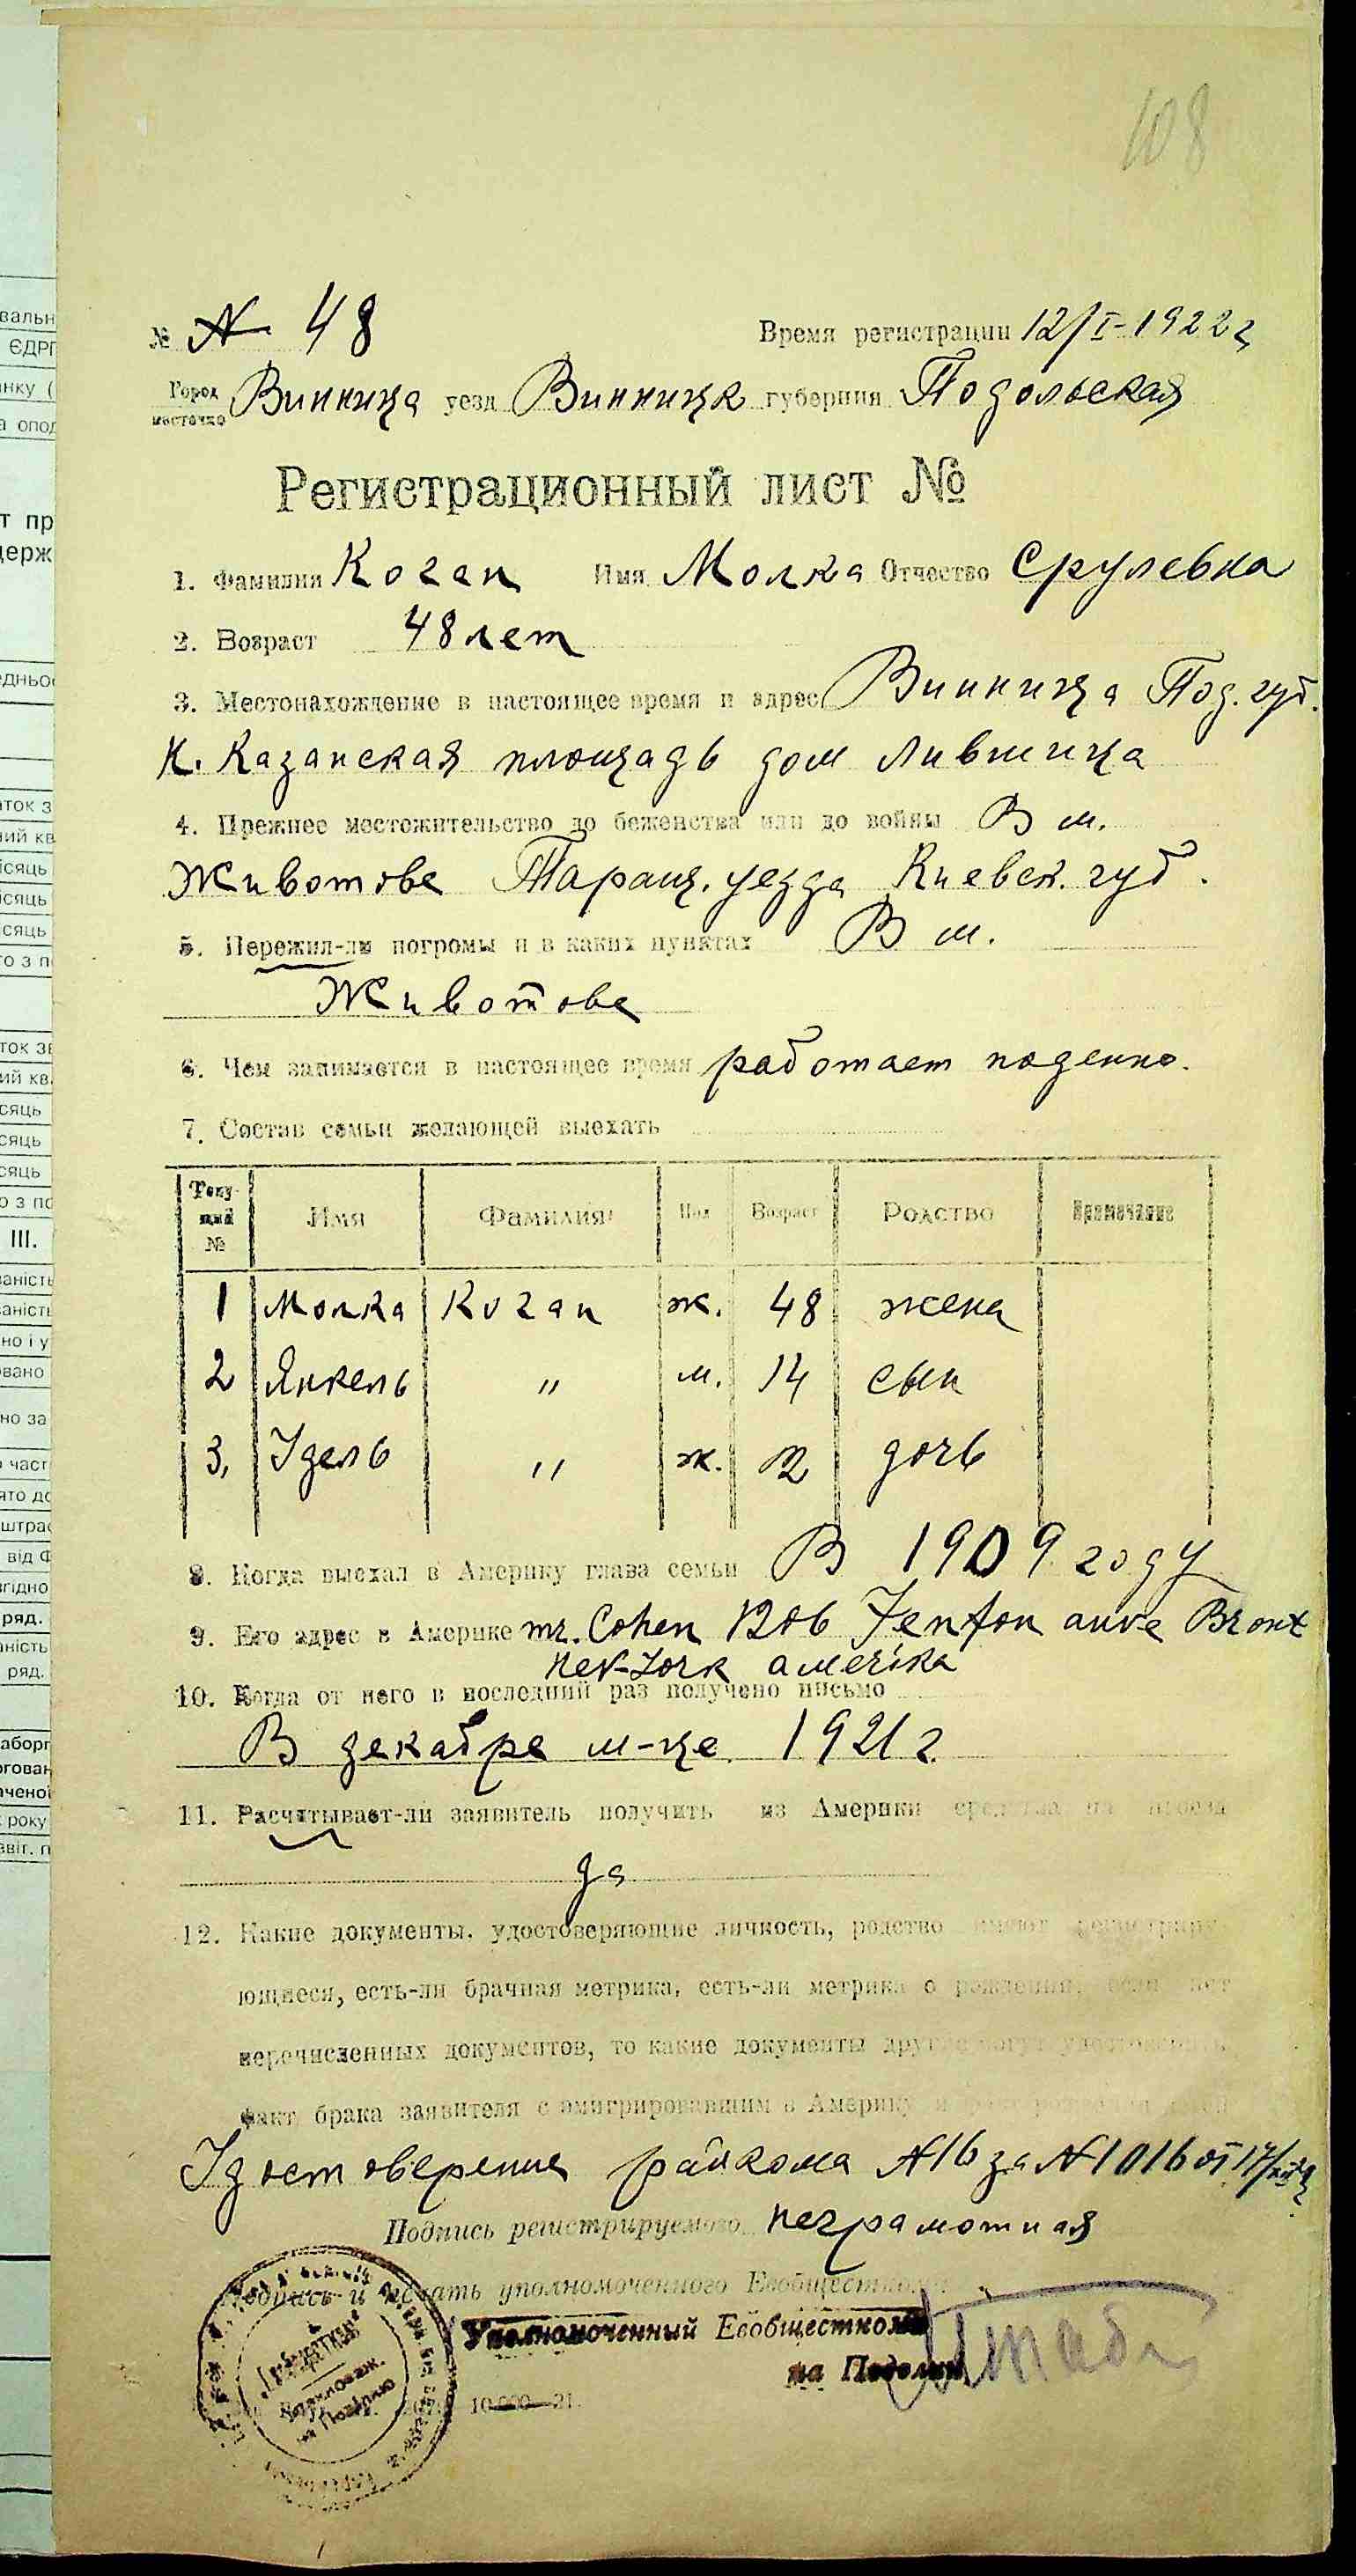 108
№ N 48 Время регистрации 12/I-1922 г
Город местечко Винница уезд Винницк губерния Подольская
Регистрационный лист №
1. Фамилия Коган Имя Молка Отчество Срулевна
2. Возраст 48 лет
3. Местонахождение в настоящее время и адрес Винница Под. губ.
К. Казанская площадь дом Лившица
4. Прежнее местожительство до беженства или до войны В м.
Животове Таращ. уезда Киевск. губ.
5. Пережил-ли погромы и в каких пунктах В м.
Животове
6. Чем занимается в настоящее время работает поденно.
7. Состав семьи желающей выехать
Теку-щий № Имя Фамилия Пол Возраст Родство Примечание
1 Молка Коган ж. 48 жена
2 Янкель " м. 14 сын
3. Удель " ж. 12 дочь
8. Когда выехал в Америку глава семьи В 1909 году
9. Его адрес в Америке mr. Cohen 1206 Fenton anve Bronx
Nev-York amerika
10. Когда от него в последний раз получено письмо
В декабре м-це 1921 г.
11. Расчитывает-ли заявитель получить из Америки средства на проезд
да
12. Какие документы, удостоверяющие личность, родство имеют регистриру-
ющиеся, есть-ли брачная метрика, есть-ли метрика о рождении, если нет
перечисленных документов, то какие документы другие могут удостоверить
факт брака заявителя с эмигрировавшим в Америку и
Удостоверение райкома N16 за N1016 от 17/
Подпись регистрируемого неграмотная
Подпись и печать уполномоченного Евобщесткома
Уполномоченный Евобщесткома
на Подолии
10.000—21.